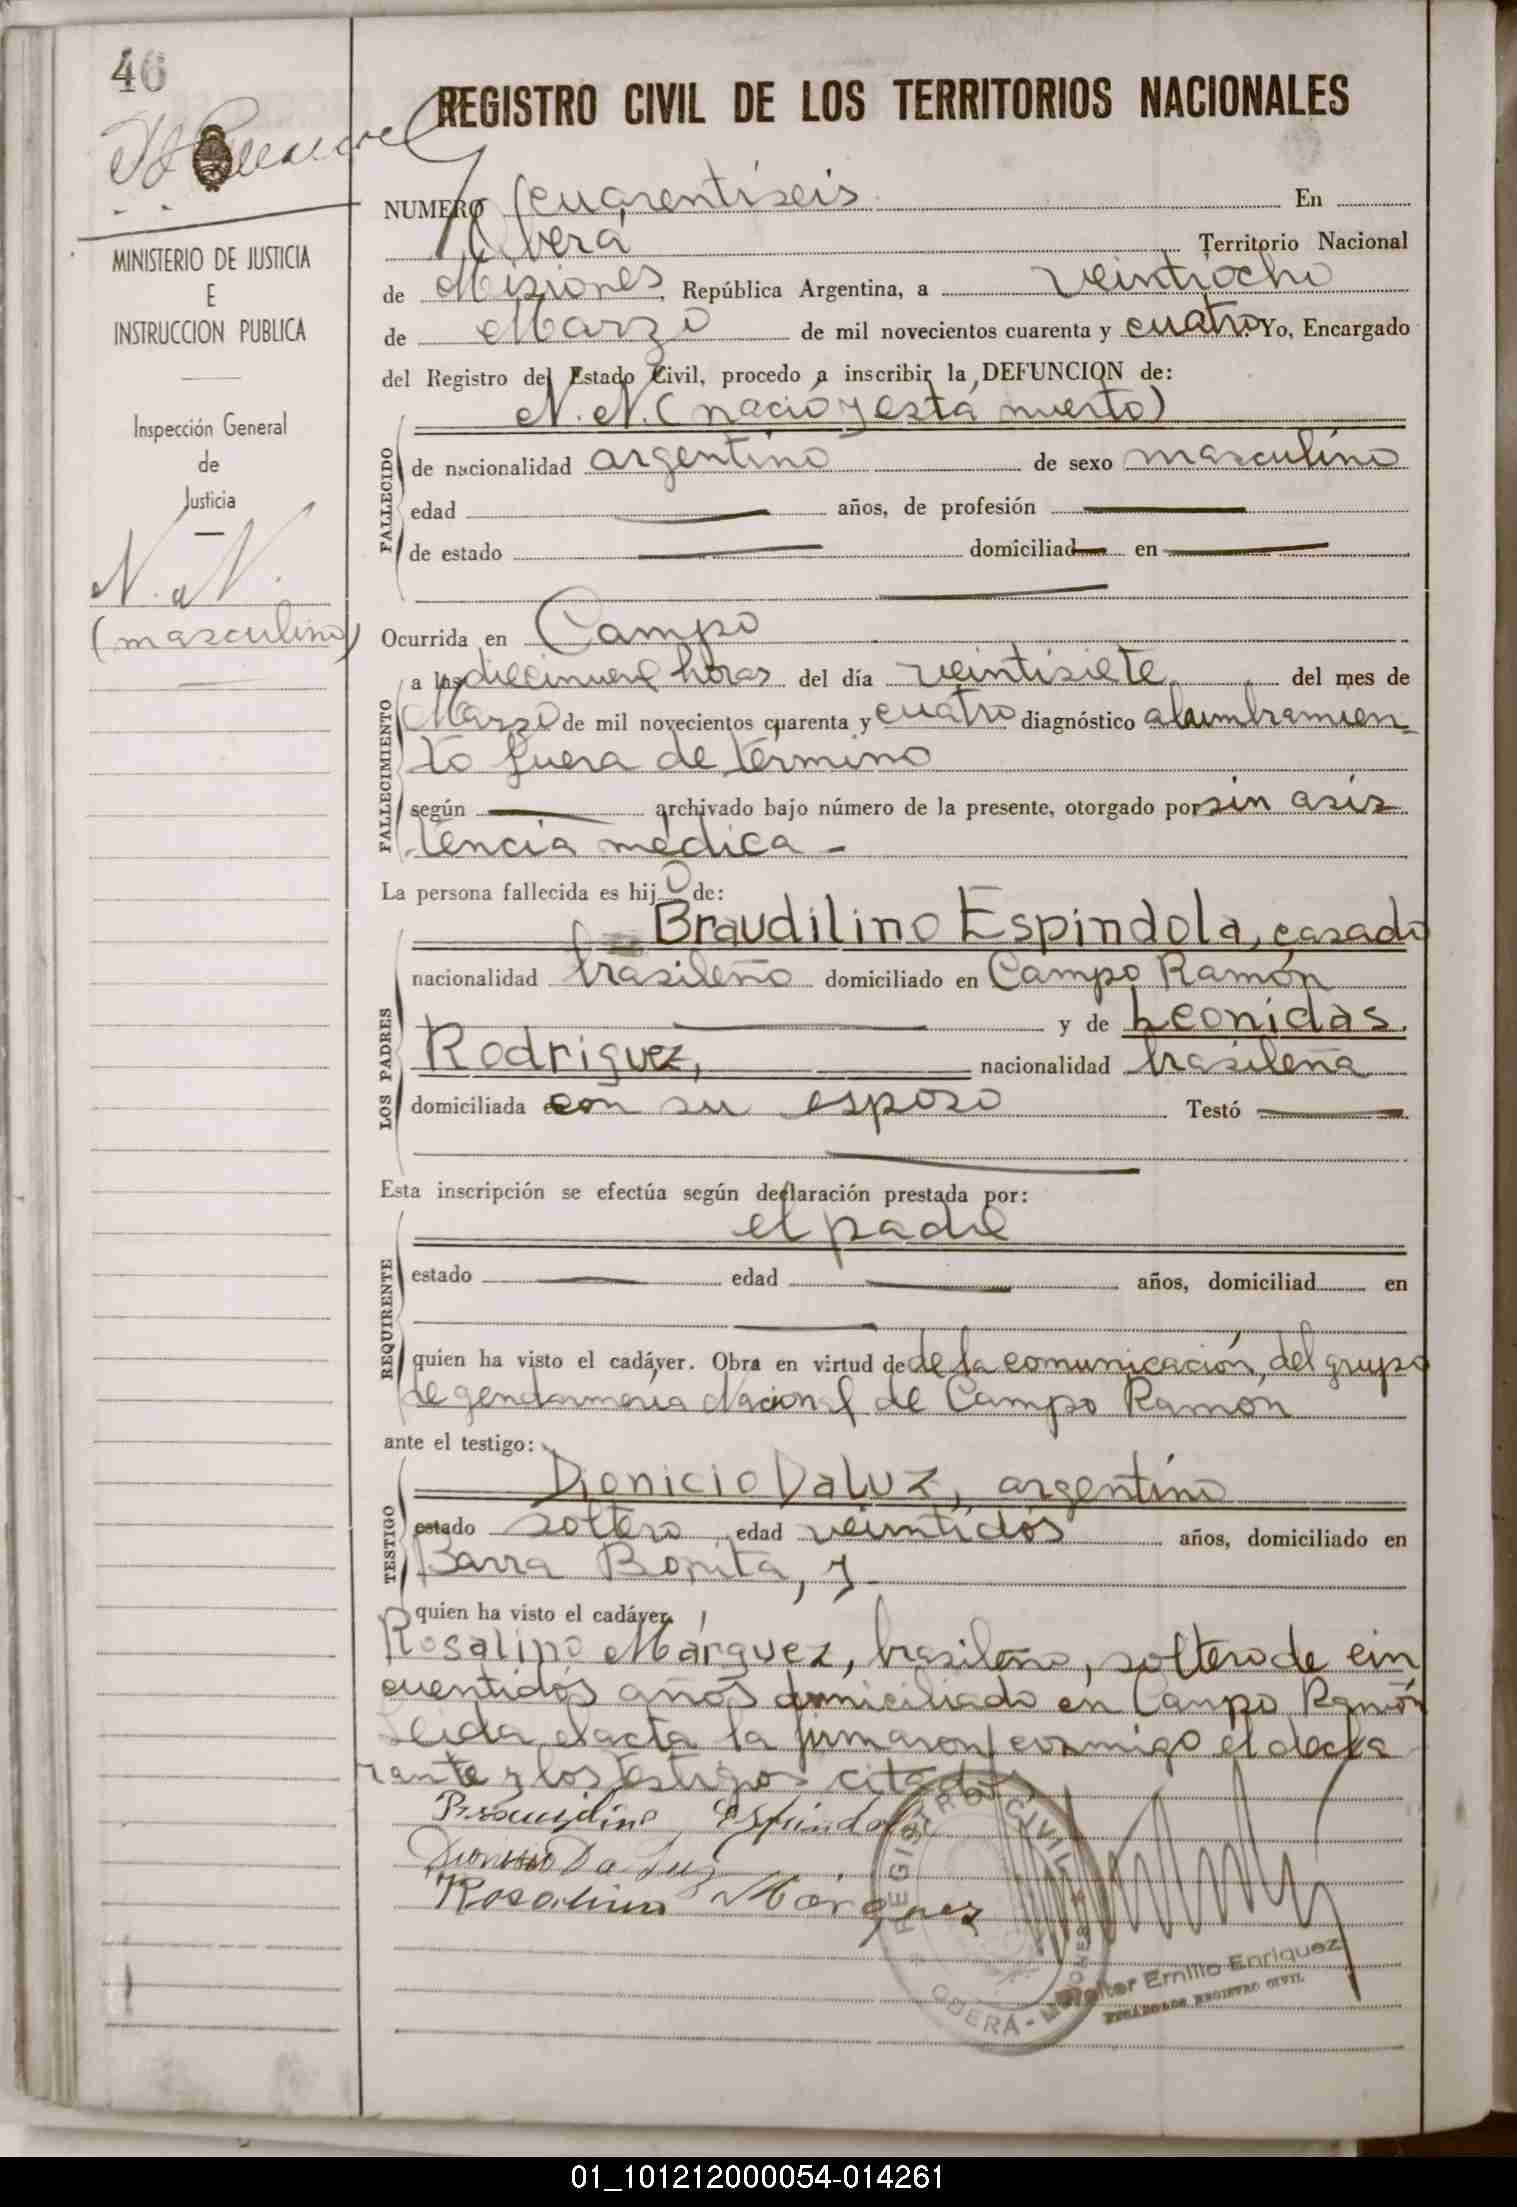 46
REGISTRO CIVIL DE LOS TERRITORIOS NACIONALES
MINISTERIO DE JUSTICIA
E
INSTRUCCION PUBLICA
Inspección General
de
Justicia
N. N.
(masculino)
NUMERO cuarentiseis En
Oberá Territorio Nacional
de Misiones, República Argentina, a veintiocho
de Marzo de mil novecientos cuarenta y cuatro. Yo, Encargado
del Registro del Estado Civil, procedo a inscribir la DEFUNCION de:
N. N. (nació y está muerto)
FALLECIDO
de nacionalidad argentino de sexo masculino
edad años, de profesión
de estado domiciliad en
Ocurrida en Campo
FALLECIMIENTO
a las diecinueve horas del día veintisiete del mes de
Marzo de mil novecientos cuarenta y cuatro diagnóstico alumbramien-
to fuera de término
según archivado bajo número de la presente, otorgado por sin asis
tencia médica -
La persona fallecida es hijo de:
LOS PADRES
Braudilino Espindola, casado
nacionalidad brasileño domiciliado en Campo Ramón
y de Leonidas
Rodriguez, nacionalidad brasileña
domiciliada con su esposo Testó
Esta inscripción se efectúa según declaración prestada por:
REQUIRENTE
el padre
estado edad años, domiciliad en
quien ha visto el cadáver. Obra en virtud de de la comunicación, del grupo
de gendarmeria Nacional de Campo Ramón
ante el testigo:
TESTIGO
Dionicio Da Luz, argentino
estado soltero edad veintidós años, domiciliado en
Barra Bonita, y
quien ha visto el cadáver.
Rosalino Márquez, brasileño, soltero de cin
cuentidós años domiciliado en Campo Ramón
Leida el acta la firmaron conmigo el decla
rante y los testigos citados
Braudilino Espindola
Dionisio Da Luz
Rosalino Márquez
REGISTRO CIVIL
OBERÁ - MISIONES
Walter Emilio Enriquez
ENCARGADO REGISTRO CIVIL
01_101212000054-014261